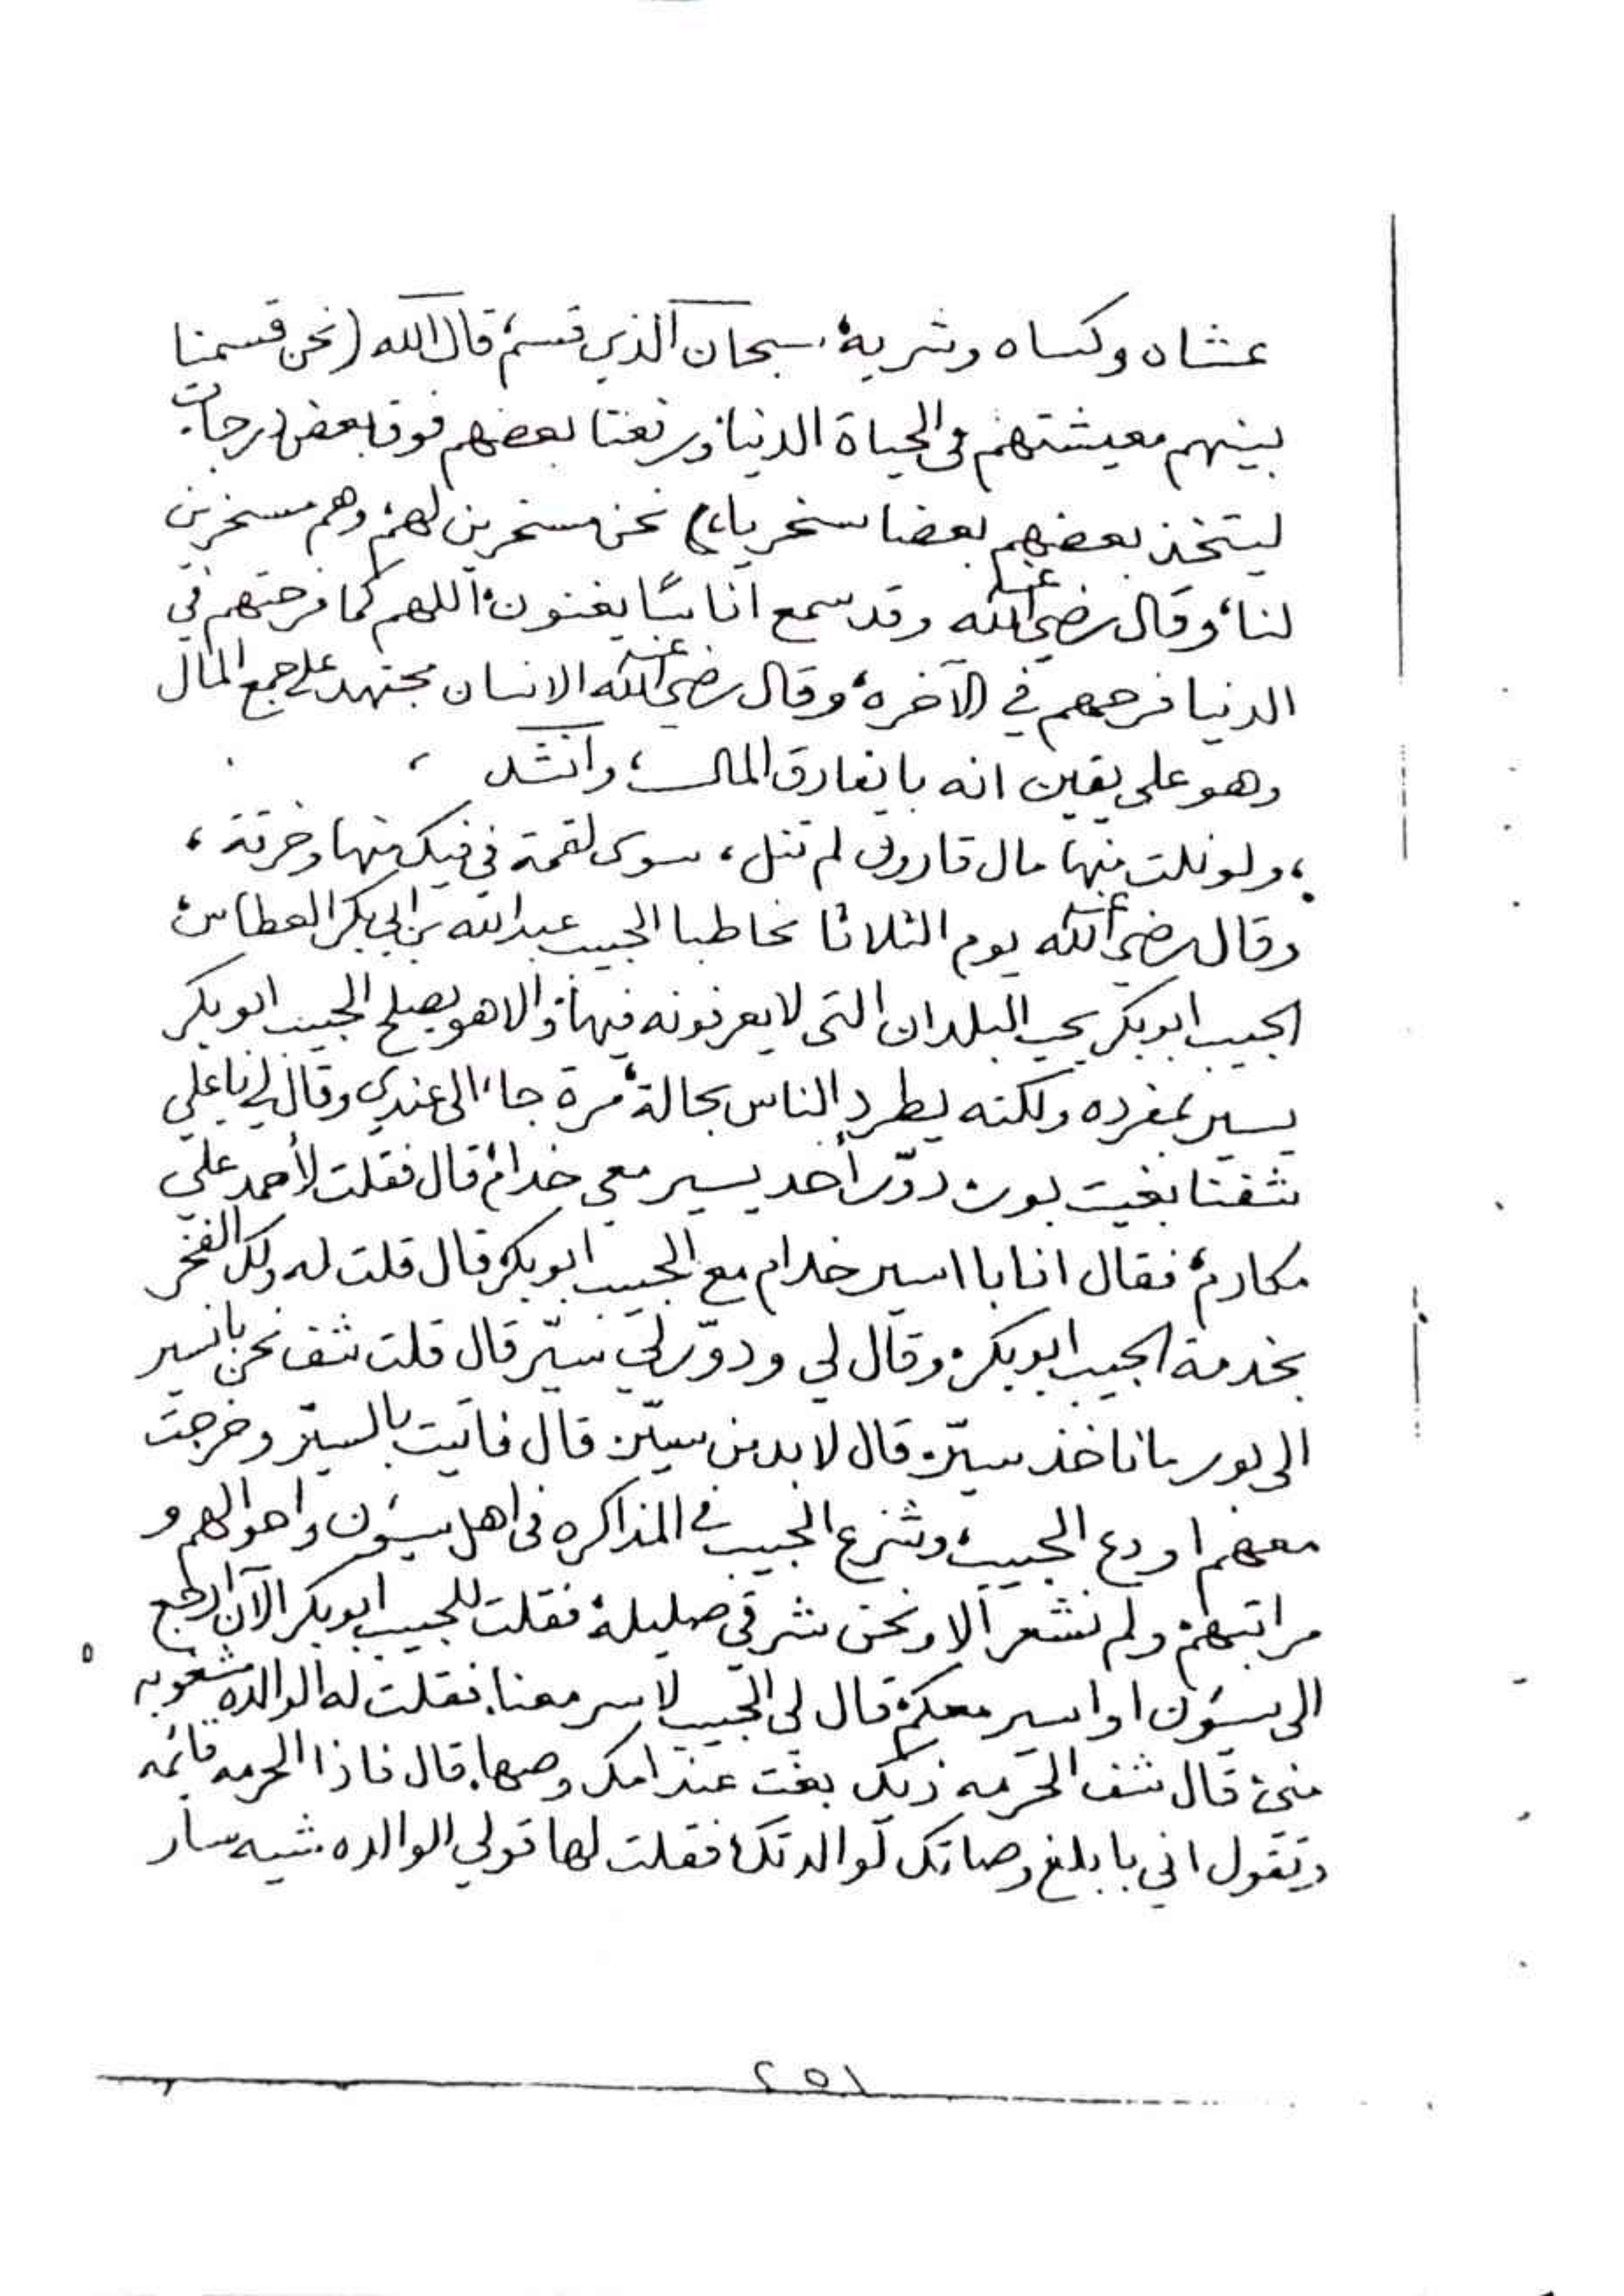 عشاه وكساه وشربه، سبحان الذي قسم، قال الله (نحن قسمنا
بينهم معيشتهم في الحياة الدنيا ورفعنا بعضهم فوق بعض درجات
ليتخذ بعضهم بعضا سخريا) نحن مسخرين لهم، وهم مسخرين
لنا، وقال رضي الله عنه وقد سمع اناسًا يغنون، اللهم كما فرحتهم في
الدنيا فرحهم في الآخرة، وقال رضي الله عنه الانسان مجتهد على جمع المال
وهو على يقين انه با يفارق المال، وانشد
، ولو نلت منها مال قارون لم تنل ، سوى لقمة في فيك منها وخرقة ،
وقال رضي الله عنه يوم الثلاثا مخاطبا الحبيب عبدالله بن ابي بكر العطاس،
الحبيب ابوبكر يحب البلدان التي لا يعرفونه فيها، والا هو يصلح الحبيب ابوبكر
يسير بمفرده ولكنه يطرد الناس بحاله، مرة جاء الى عندي وقال لي يا علي
شفنا بغيت بور دوّر أحد يسير معي خدام، قال فقلت لأحمد علي
مكارم، فقال انا با اسير خدام مع الحبيب ابوبكر، قال قلت له ولك الفخر
بخدمة الحبيب ابوبكر، وقال لي ودوّر لي سيّر قال قلت شف نحن بانسير
الى بور ما ناخذ سيّر، قال لا بد من سيّر، قال فاتيت بالسيّر وخرجت
معهم اودع الحبيب، وشرع الحبيب في المذاكره في اهل سيؤن واحوالهم و
مراتبهم، ولم نشعر الا ونحن شرقي صليلة، فقلت للحبيب ابوبكر الآن ارجع
الى سيؤن او اسير معكم، قال لي الحبيب لا سر معنا، فقلت له الوالده مشغوبه
مني، قال شف الحرمه ذيك بغت عند امك وصها، قال فاذا الحرمه قائمه
وتقول اني با بلغ وصاتك لوالدتك، فقلت لها قولي الوالده شيه سار
٢٥١